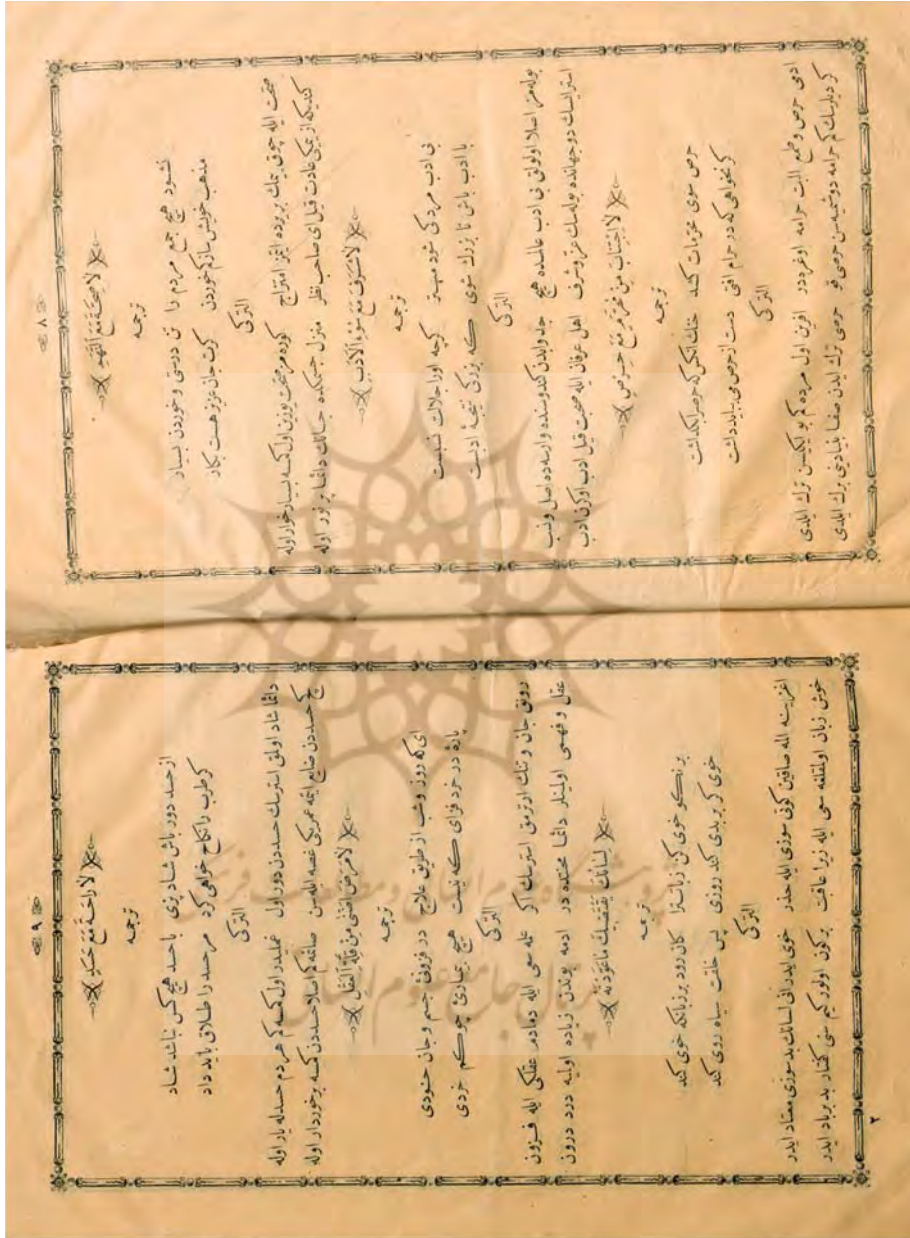 ٨
لَا صِحَّةَ مَعَ النَّهَمِ
ترجمه
نشود هیچ جمع مردم را تن درستی و خوردن بسیار
مذهب خویش ساز کم خوردن کرت جان عزیز هست بکار
الترکی
صحت ایله چوق یمك بر یرده ایتمز امتزاج کوره مز صحت یوزین اول کمسه بسیار خوار اوله
کندیکه از یمکی عادت قیل ای صاحب نظر منزل جسمکده جانك دائما پر نور اوله
لَا شَرَفَ مَعَ سُوءِ الْاَدَبِ
ترجمه
بی ادب مرد کی شود مهتر کرچه اورا جلالت نسبست
با ادب باش تا بزرك شوی که بزرکی نتیجهٔ ادبست
الترکی
بوله مز اصلا اولولق بی ادب عالمده هیچ جد وابدن کندوسنده وارسه ده اصل ونسب
استرایسك دو جهانده بولمسك عز وشرف اهل عرفان ایله صحبت قیل ادب اوکرن ادب
لَا اجْتِنَابَ مِنْ مُحَرَّمٍ مَعَ حِرْصٍ
ترجمه
حرص سوی محرمات کشد خنك انکس که حرص را بکذاشت
کر نخواهی که در حرام افتی دست از حرص می بباید داشت
الترکی
ادمی حرص وطمع البت حرامه اوغرادر افرین اول مرده کم بو ایکیسن ترك ایلدی
کر دیلرسك کم حرامه دوشمیه سن حرصی قو حرصی ترك ایدن صفا بنیادینی برك ایلدی
٩
لَا رَاحَةَ مَعَ حَسَدٍ
ترجمه
از حسد دور باش شاد بزی با حسد هیچ کس نباشد شاد
کر طرب را نکاح خواهی کرد مر حسد را طلاق باید داد
الترکی
دائما شاد اولمق استرسك حسددن دور اول غملیدر اول کمسه کم هر دم حسدله یار اوله
کچ حسددن ضایع ایتمه عمریکی غصه الله سن صانمه کم اصلا حسددن کمسه برخوردار اوله
لَا مَرَضَ اَضْنٰی مِنْ قِلَّةِ الْعَقْلِ
ترجمه
ای که روز وشب از طریق علاج در فزونی جسم وجان خودی
پارهٔ در خرد فزای که نیست هیچ بیماریٔ چو کم خردی
الترکی
رونق جان وتنك ارترمق استرسك اکر عله سعی ایله دمادم عقلکی ایله فزون
عقل وفهمی اولمینلر دائما محنتده در ادمه بوندن زیاده اولمیه درد درون
لِسَانُكَ يَقْتَضِيكَ مَا عَوَّدْتَهُ
ترجمه
بر نکو خوی کن زبانت را کان رود بر زبان که خوی کند
خوی کر بر بدی کند روزی پس خلقت سیاه روی کند
الترکی
اغزینه المه صاقین کوتی سوزی ایله حذر خوی ایدر انی لسانك بد سوزی معتاد ایدر
خوش زبان اولمقلغه سعی ایله زیرا عاقبت بر کون اولور کیم سنی کفتار بد برباد ایدر
٢
پژوهشگاه علوم انسانی و مطالعات فرهنگی
پرتال جامع علوم انسانی